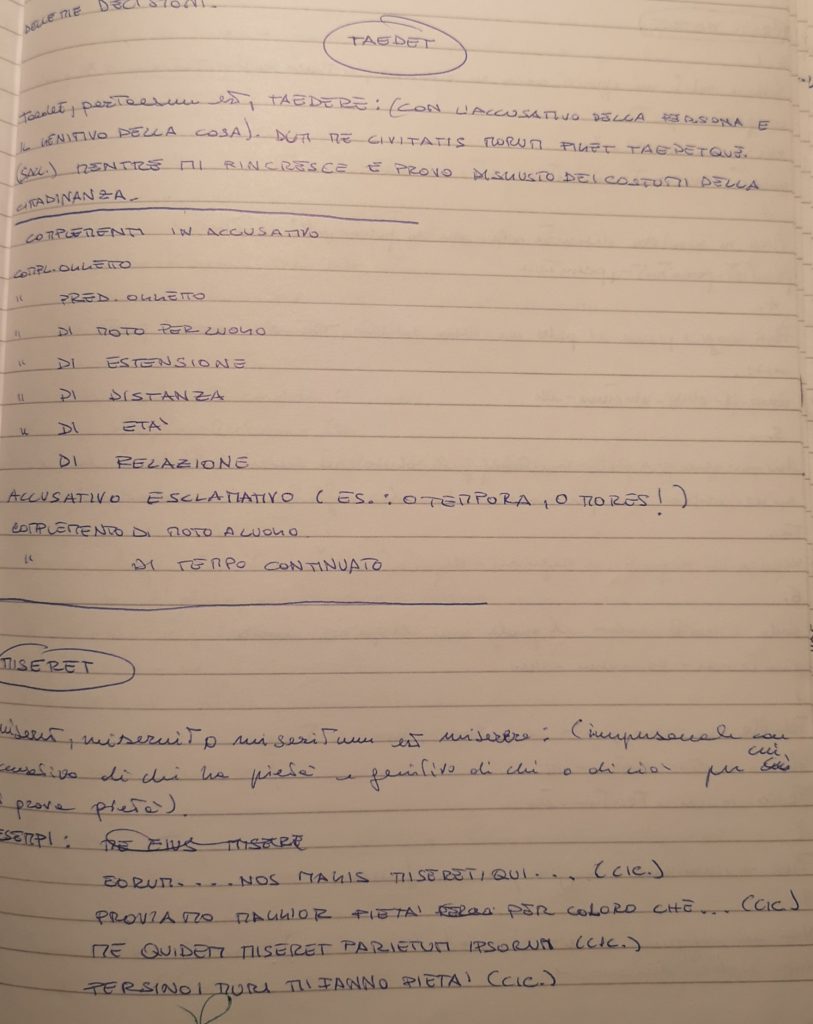 DELLE MIE DECISIONI.
TAEDET
taedet, pertaesum est, TAEDERE: (CON L'ACCUSATIVO DELLA PERSONA E
IL GENITIVO DELLA COSA). DUM ME CIVITATIS MORUM PIGET TAEDETQUE.
(SAL.) MENTRE MI RINCRESCE E PROVO DISGUSTO DEI COSTUMI DELLA
CITTADINANZA.
COMPLEMENTI IN ACCUSATIVO
COMPL. OGGETTO
" PRED. OGGETTO
" DI MOTO PER LUOGO
" DI ESTENSIONE
" DI DISTANZA
" DI ETÀ
DI RELAZIONE
ACCUSATIVO ESCLAMATIVO (ES.: O TEMPORA, O MORES!)
COMPLEMENTO DI MOTO A LUOGO.
" DI TEMPO CONTINUATO
MISERET
miseret, miseruit o miseritum est miserere: (impersonale con
accusativo di chi ha pietà e genitivo di chi o di ciò per cui
si prova pietà).
ESEMPI: ME EIUS MISERE
EORUM.... NOS MAGIS MISERET, QUI... (CIC.)
PROVIAMO MAGGIOR PIETÀ PER COLORO CHE... (CIC)
ME QUIDEM MISERET PARIETUM IPSORUM (CIC.)
PERSINO I MURI MI FANNO PIETÀ (CIC.)